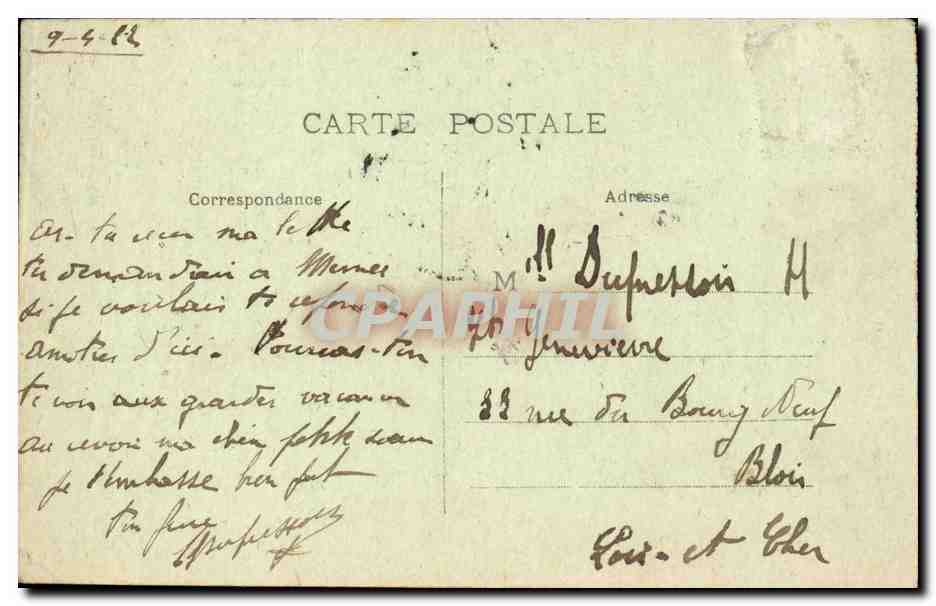 9-4-22
CARTE POSTALE
Correspondance
as-tu reçu ma lettre
tu demandais a
si je voulais te
d'ici. Pourras-tu
te voir aux grandes vacances
au revoir ma chère petite sœur
je t'embrasse bien fort
ton frère
Adresse
Mlle Dupressoir H
Genevieve
33 rue du Bourg Neuf
Blois
Loir-et Cher
CPAPHIL